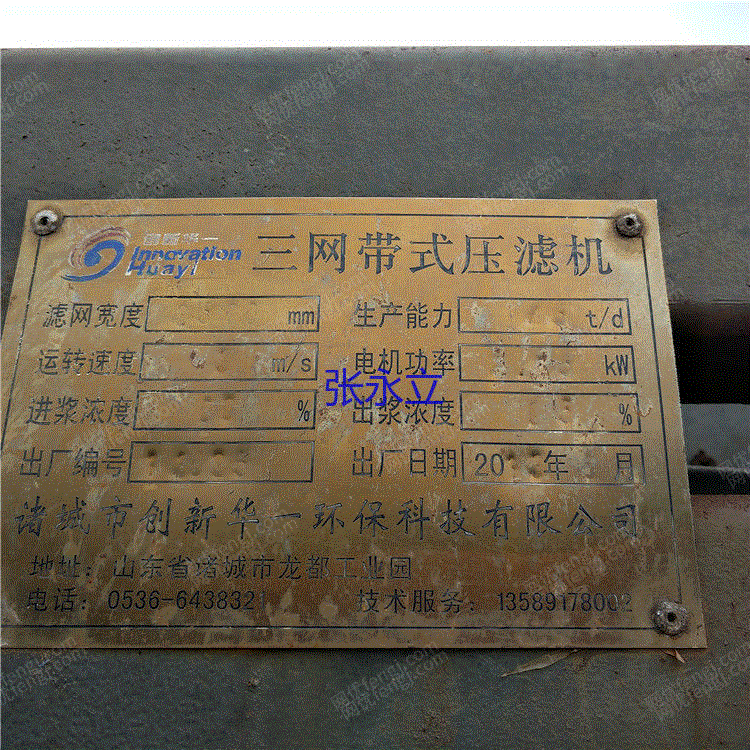 创新华一
Innovation
Huayi
三网带式压滤机
滤网宽度 mm 生产能力 t/d
运转速度 m/s 电机功率 kW
张永立
进浆浓度 % 出浆浓度 %
出厂编号 出厂日期 20 年 月
诸城市创新华一环保科技有限公司
地址：山东省诸城市龙都工业园
电话：0536-6438321 技术服务：13589178002